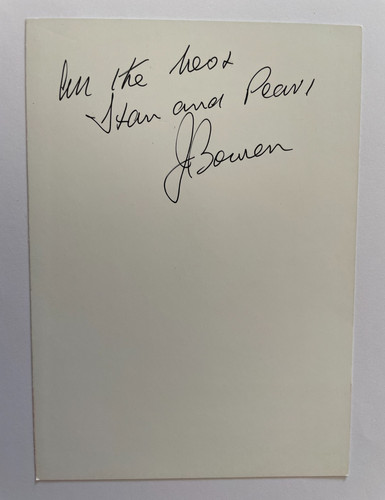 All the best
Stan and Pearl
J Bowen